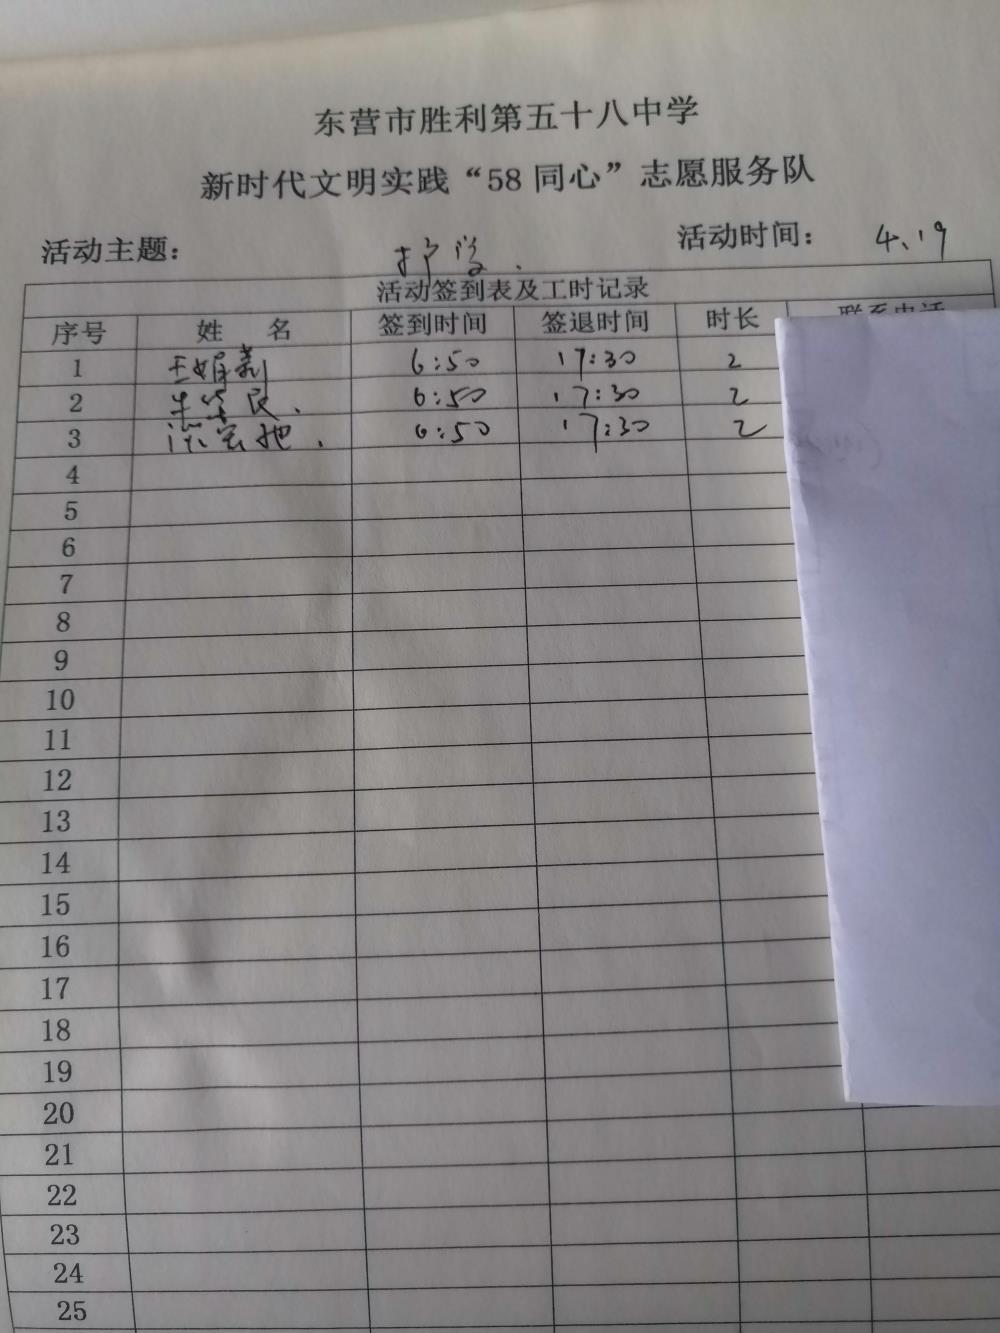 东营市胜利第五十八中学
新时代文明实践“58 同心”志愿服务队
活动主题： 护学. 活动时间： 4.19
活动签到表及工时记录
序号 姓 名 签到时间 签退时间 时长 联系电话
1 6:50 17:30 2
2 6:50 17:30 2
3 6:50 17:30 2
4
5
6
7
8
9
10
11
12
13
14
15
16
17
18
19
20
21
22
23
24
25